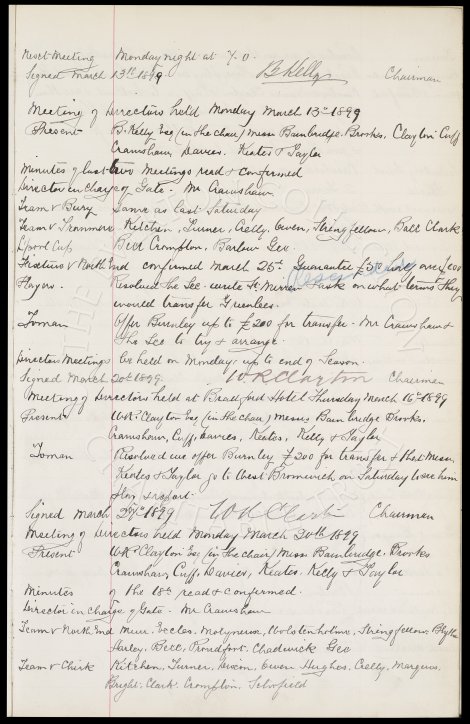 Next Meeting Monday night at 7.0.
Signed March 13th 1899 B Kelly Chairman
Meeting of Directors held Monday March 13th 1899
Present B. Kelly Esq (in the chair) Messrs Bainbridge. Brooks. Clayton Cuff
Crawshaw, Davies. Keates & Taylor
Minutes of last two Meetings read & confirmed
Director in Charge of Gate. Mr Crawshaw
Team v Bury Same as last Saturday
Team v Tranmere Kitchen, Turner, Owen, Stringfellow, Ball Clark
L'pool Cup Bell Crompton, Barlow Gee
Fixtures v North End confirmed March 25th Guarantee £50 over
Players. Resolved the Sec. write St Mirren & ask on what terms they
would transfer
Toman Offer Burnley up to £200 for transfer. Mr Crawshaw &
the Sec to try & arrange.
Directors Meetings be held on Monday up to end of Season.
Signed March 20th 1899. W R Clayton Chairman
Meeting of Directors held at Bradford Hotel Thursday March 16th 1899
Present W.R. Clayton Esq (in the chair) Messrs Bainbridge Brooks.
Crawshaw, Cuff, Davies, Keates, Kelly & Taylor
Toman Resolved we offer Burnley £200 for transfer & that Messrs
Keates & Taylor go to West Bromwich on Saturday to see him
play & report.
Signed March 1899 W R Clayton Chairman
Meeting of Directors held Monday March 20th 1899
Present W.R. Clayton Esq (in the chair) Messrs Bainbridge. Brooks
Crawshaw, Cuff, Davies, Keates. Kelly & Taylor
Minutes of the read & confirmed.
Director in Charge of Gate. Mr Crawshaw
Team v North End Muir. Eccles. Molyneux, Wolstenholme, Stringfellow. Blythe
Bell, Proudfoot. Chadwick Gee
Team v Chirk Kitchen, Turner, Owen Hughes. Marquis.
Bright. Clark. Crompton. Schofield